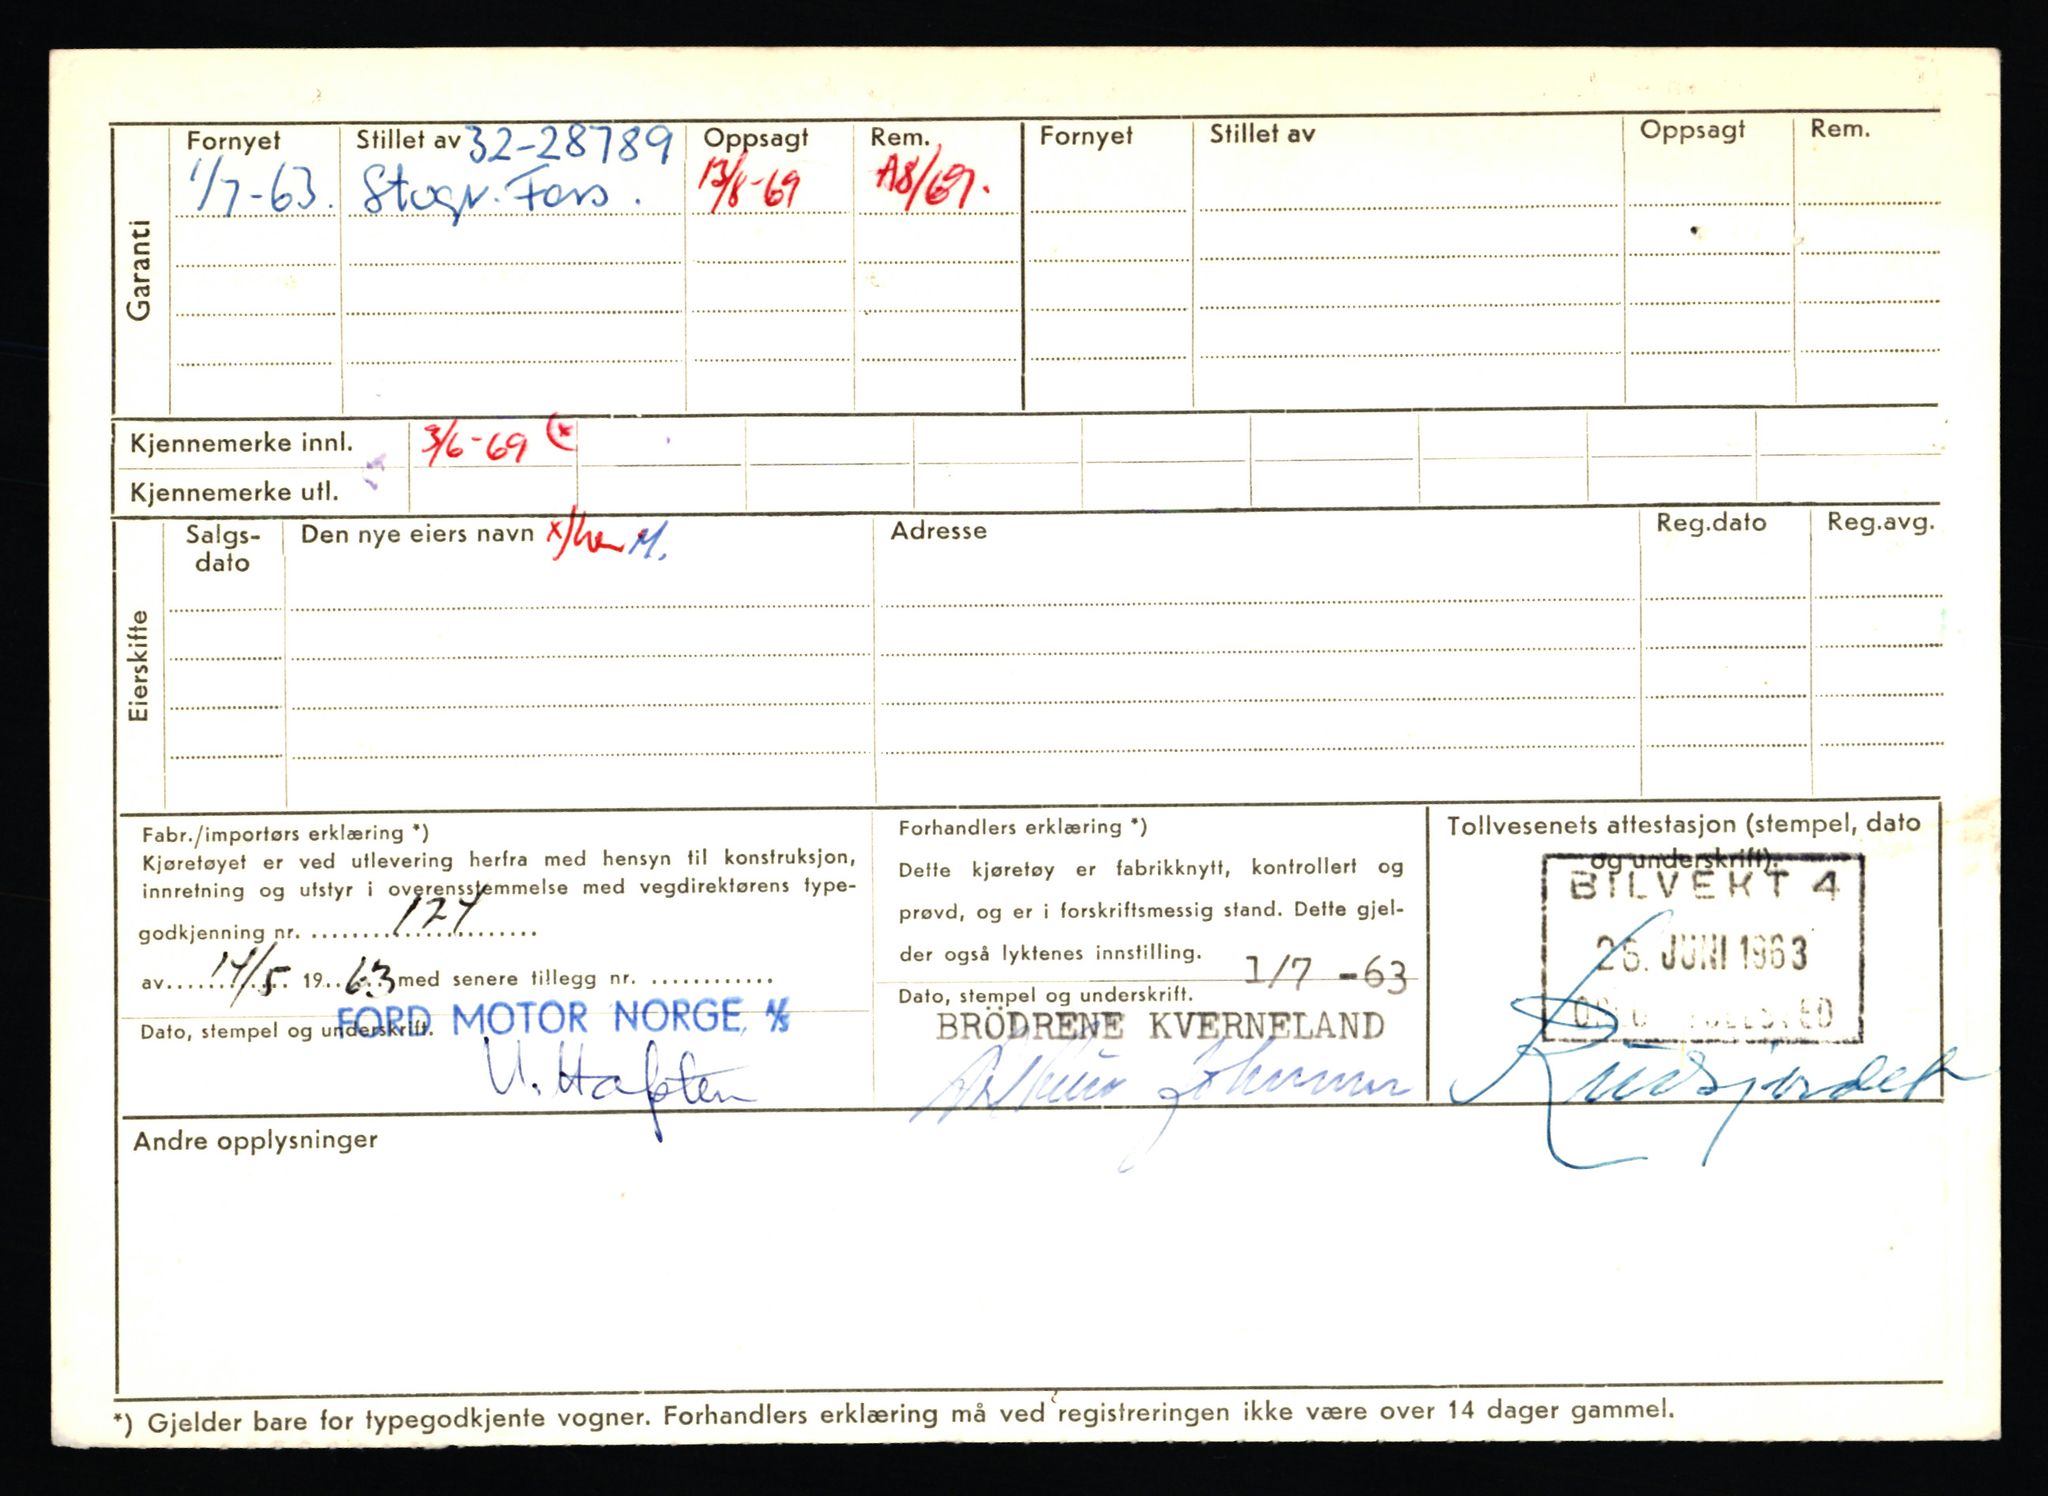 Garanti
Fornyet Stillet av 32-28789 Oppsagt Rem. Fornyet Stillet av Oppsagt Rem.
1/7-63. Stogr. Fors. 13/8-69 A8/69.
Kjennemerke innl. 3/6-69 (x
Kjennemerke utl.
Eierskifte
Salgs-
dato
Den nye eiers navn x/ M. Adresse Reg.dato Reg.avg.
Fabr./importørs erklæring *)
Kjøretøyet er ved utlevering herfra med hensyn til konstruksjon,
innretning og utstyr i overensstemmelse med vegdirektørens type-
godkjenning nr. 124
av 14/5 1963 med senere tillegg nr. ............
Dato, stempel og underskrift.
FORD MOTOR NORGE A/S
U. Hafsten
Forhandlers erklæring *)
Dette kjøretøy er fabrikknytt, kontrollert og
prøvd, og er i forskriftsmessig stand. Dette gjel-
der også lyktenes innstilling. 1/7 -63
Dato, stempel og underskrift.
BRÖDRENE KVERNELAND
Tollvesenets attestasjon (stempel, dato
og underskrift).
BILVEKT 4
26. JUNI 1963
OSLO TOLLSTED
Andre opplysninger
*) Gjelder bare for typegodkjente vogner. Forhandlers erklæring må ved registreringen ikke være over 14 dager gammel.